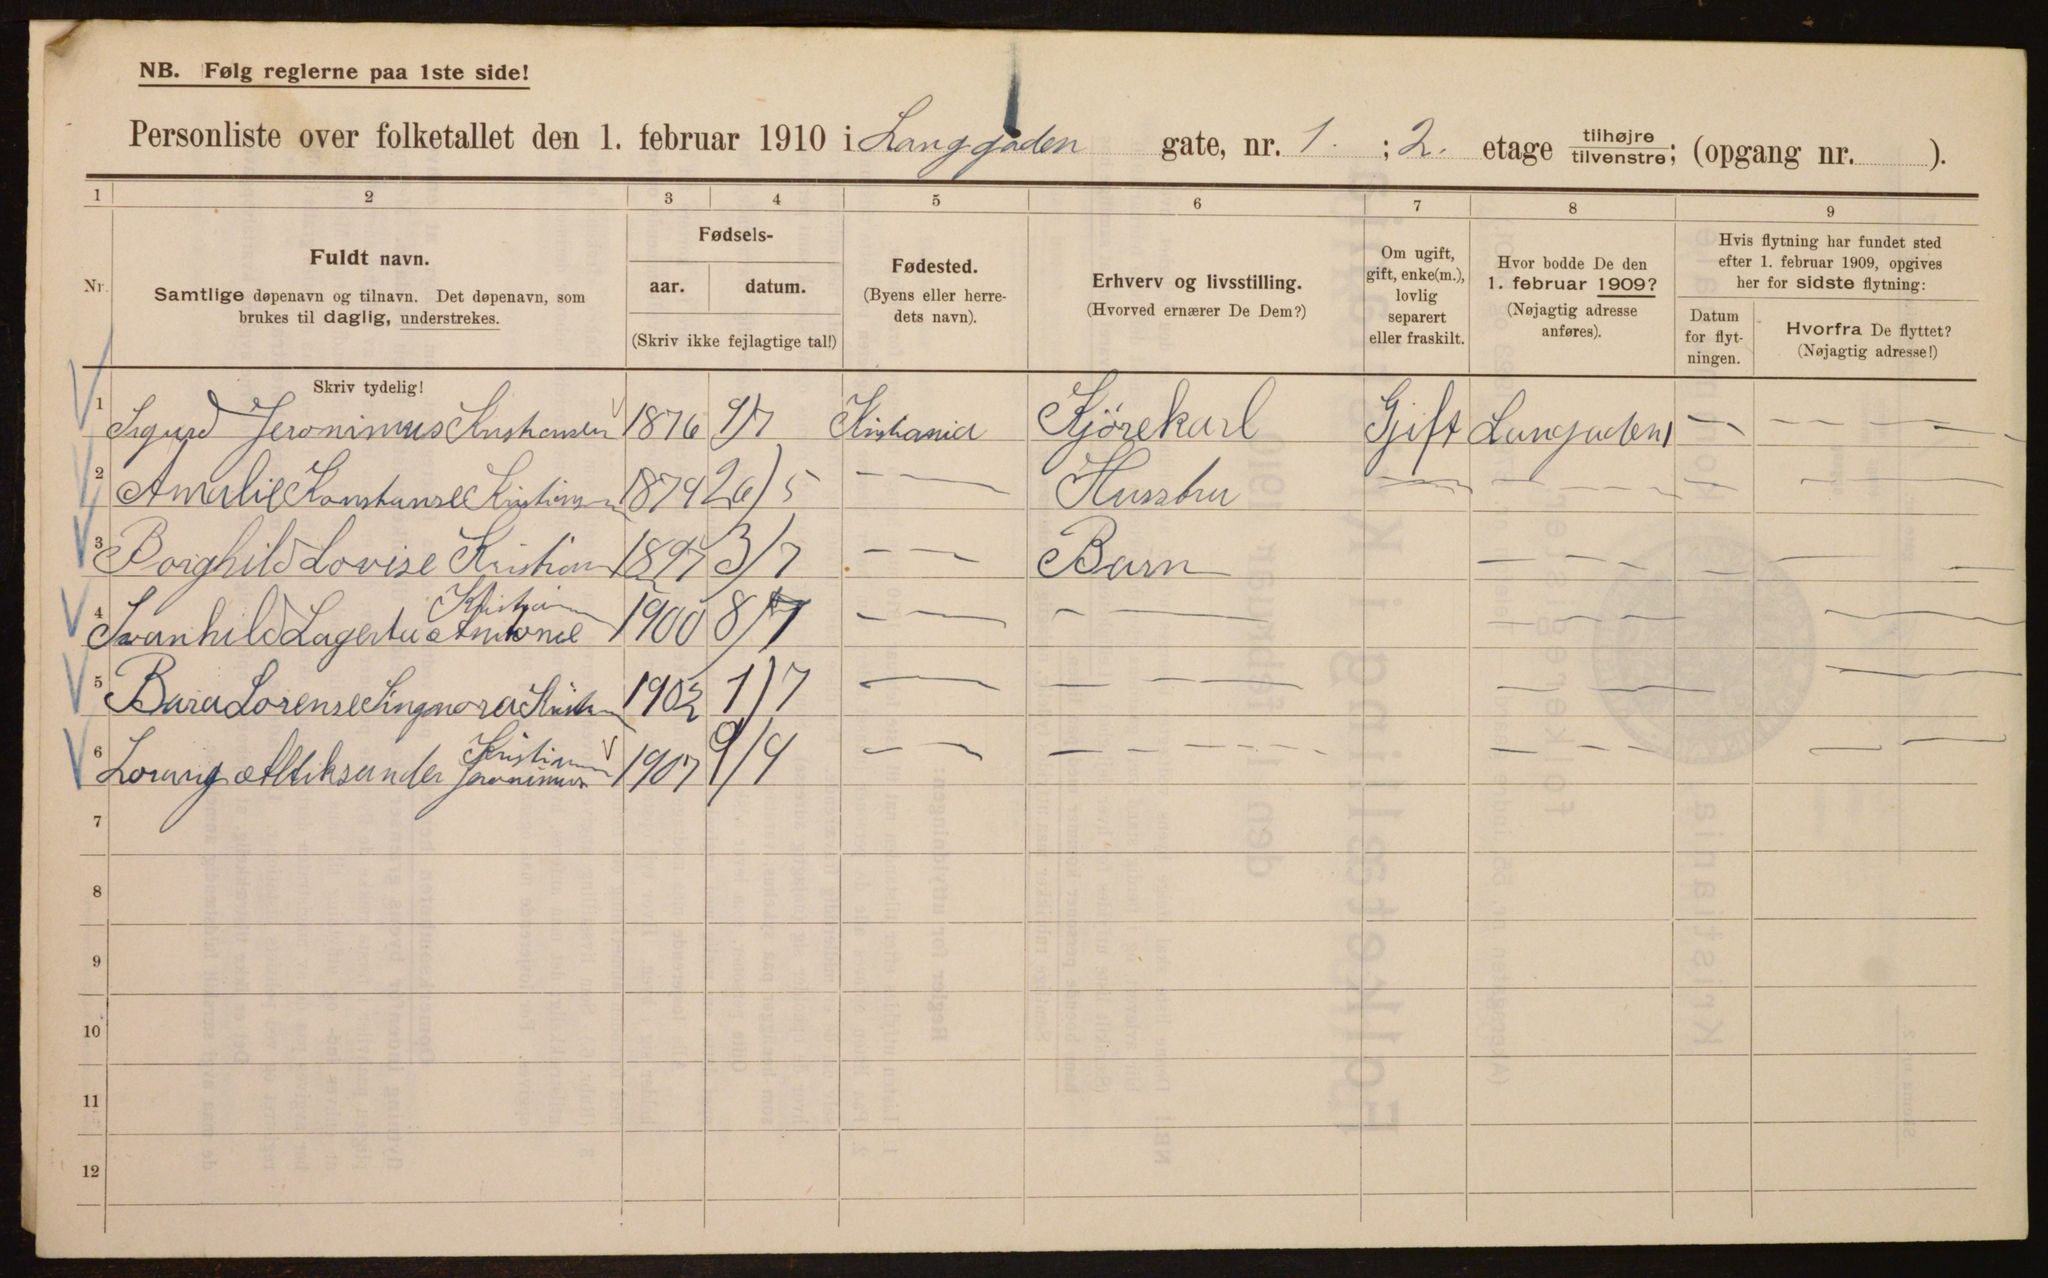 NB. Følg reglerne paa 1ste side!
Personliste over folketallet den 1. februar 1910 i Langgaden gate, nr. 1. ; 2. etage tilhøjre tilvenstre; (opgang nr. ).
1 2 3 4 5 6 7 8 9
Nr.
Fuldt navn.
Samtlige døpenavn og tilnavn. Det døpenavn, som
brukes til daglig, understrekes.
Skriv tydelig!
Fødsels-
aar. datum.
(Skriv ikke fejlagtige tal!)
Fødested.
(Byens eller herre-
dets navn).
Erhverv og livsstilling.
(Hvorved ernærer De Dem?)
Om ugift,
gift, enke(m.),
lovlig
separert
eller fraskilt.
Hvor bodde De den
1. februar 1909?
(Nøjagtig adresse
anføres).
Hvis flytning har fundet sted
efter 1. februar 1909, opgives
her for sidste flytning:
Datum
for flyt-
ningen.
Hvorfra De flyttet?
(Nøjagtig adresse!)
1 Sigurd Jeronimus Kristiansen 1876 9/7 Kristiania Kjörekarl Gift Langgaden 1 — — — — —
2 Amalie Konstanse Kristians 1879 26/5 — — Husstru — — — — — — — —
3 Borghild Lovise Kristian 1897 3/7 — — Barn — — — — — —
Kristian
4 Lagerta Antonie 1900 8/7 — — — — — — — — —
5 Lorense Kristn 1902 1/7 — — — — — — — — — —
Kristian
6 Jeronimus 1907 9/4 — — — — — — — — — — — —
7
8
9
10
11
12